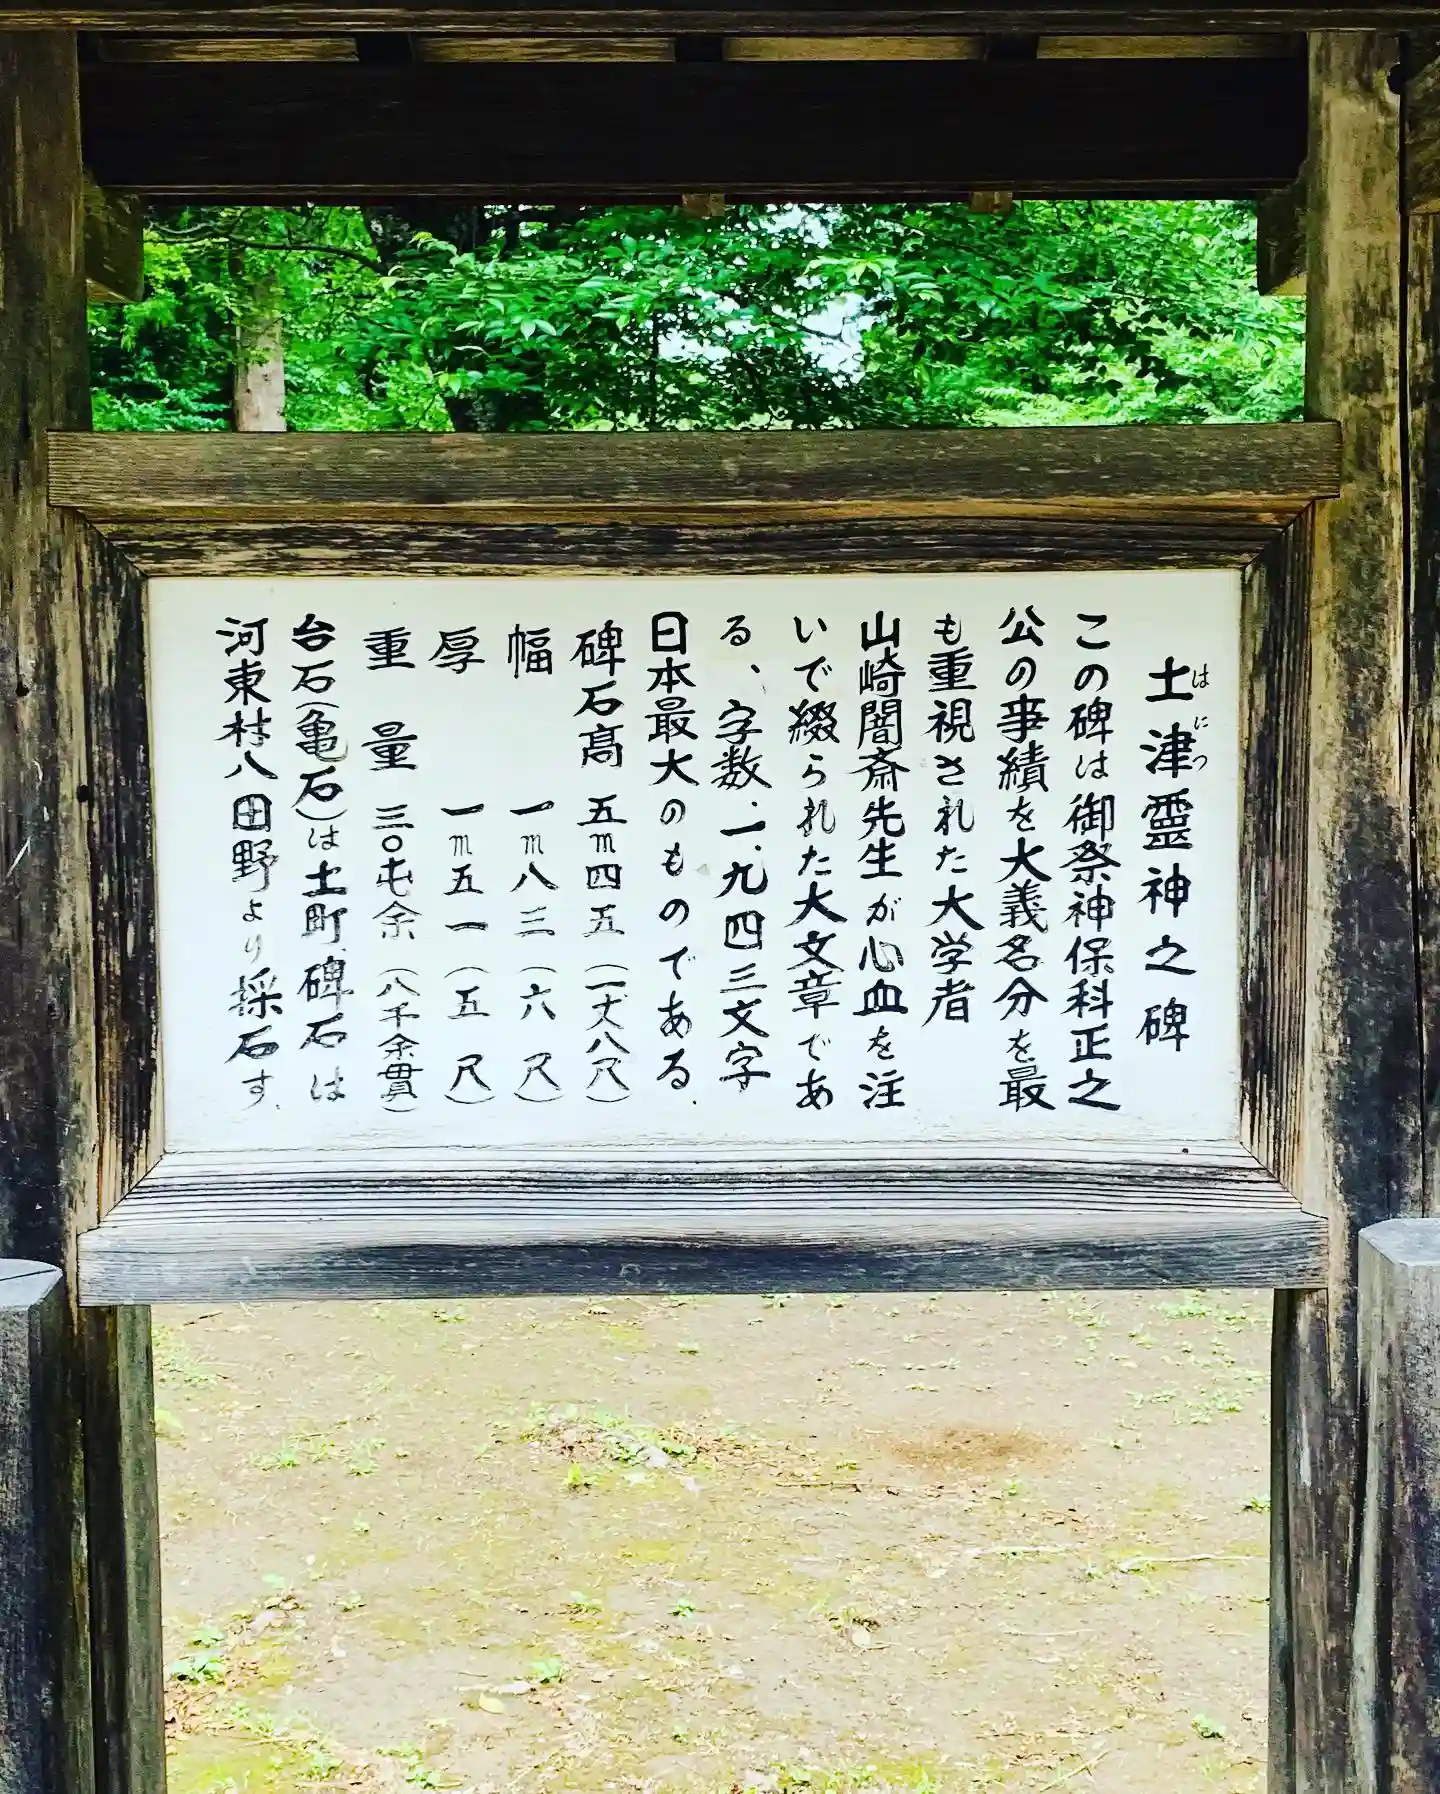 土津霊神之碑
はにつ
この碑は御祭神保科正之
公の事績を大義名分を最
も重視された大学者
山崎闇斎先生が心血を注
いで綴られた大文章であ
る、字数、一、九四三文字
日本最大のものである.
碑石高 五m四五(一丈八尺)
幅 一m八三(六尺)
厚 一m五一(五尺)
重量 三〇屯余(八千余貫)
台石(亀石)は土町、碑石は
河東村八田野より採石す.